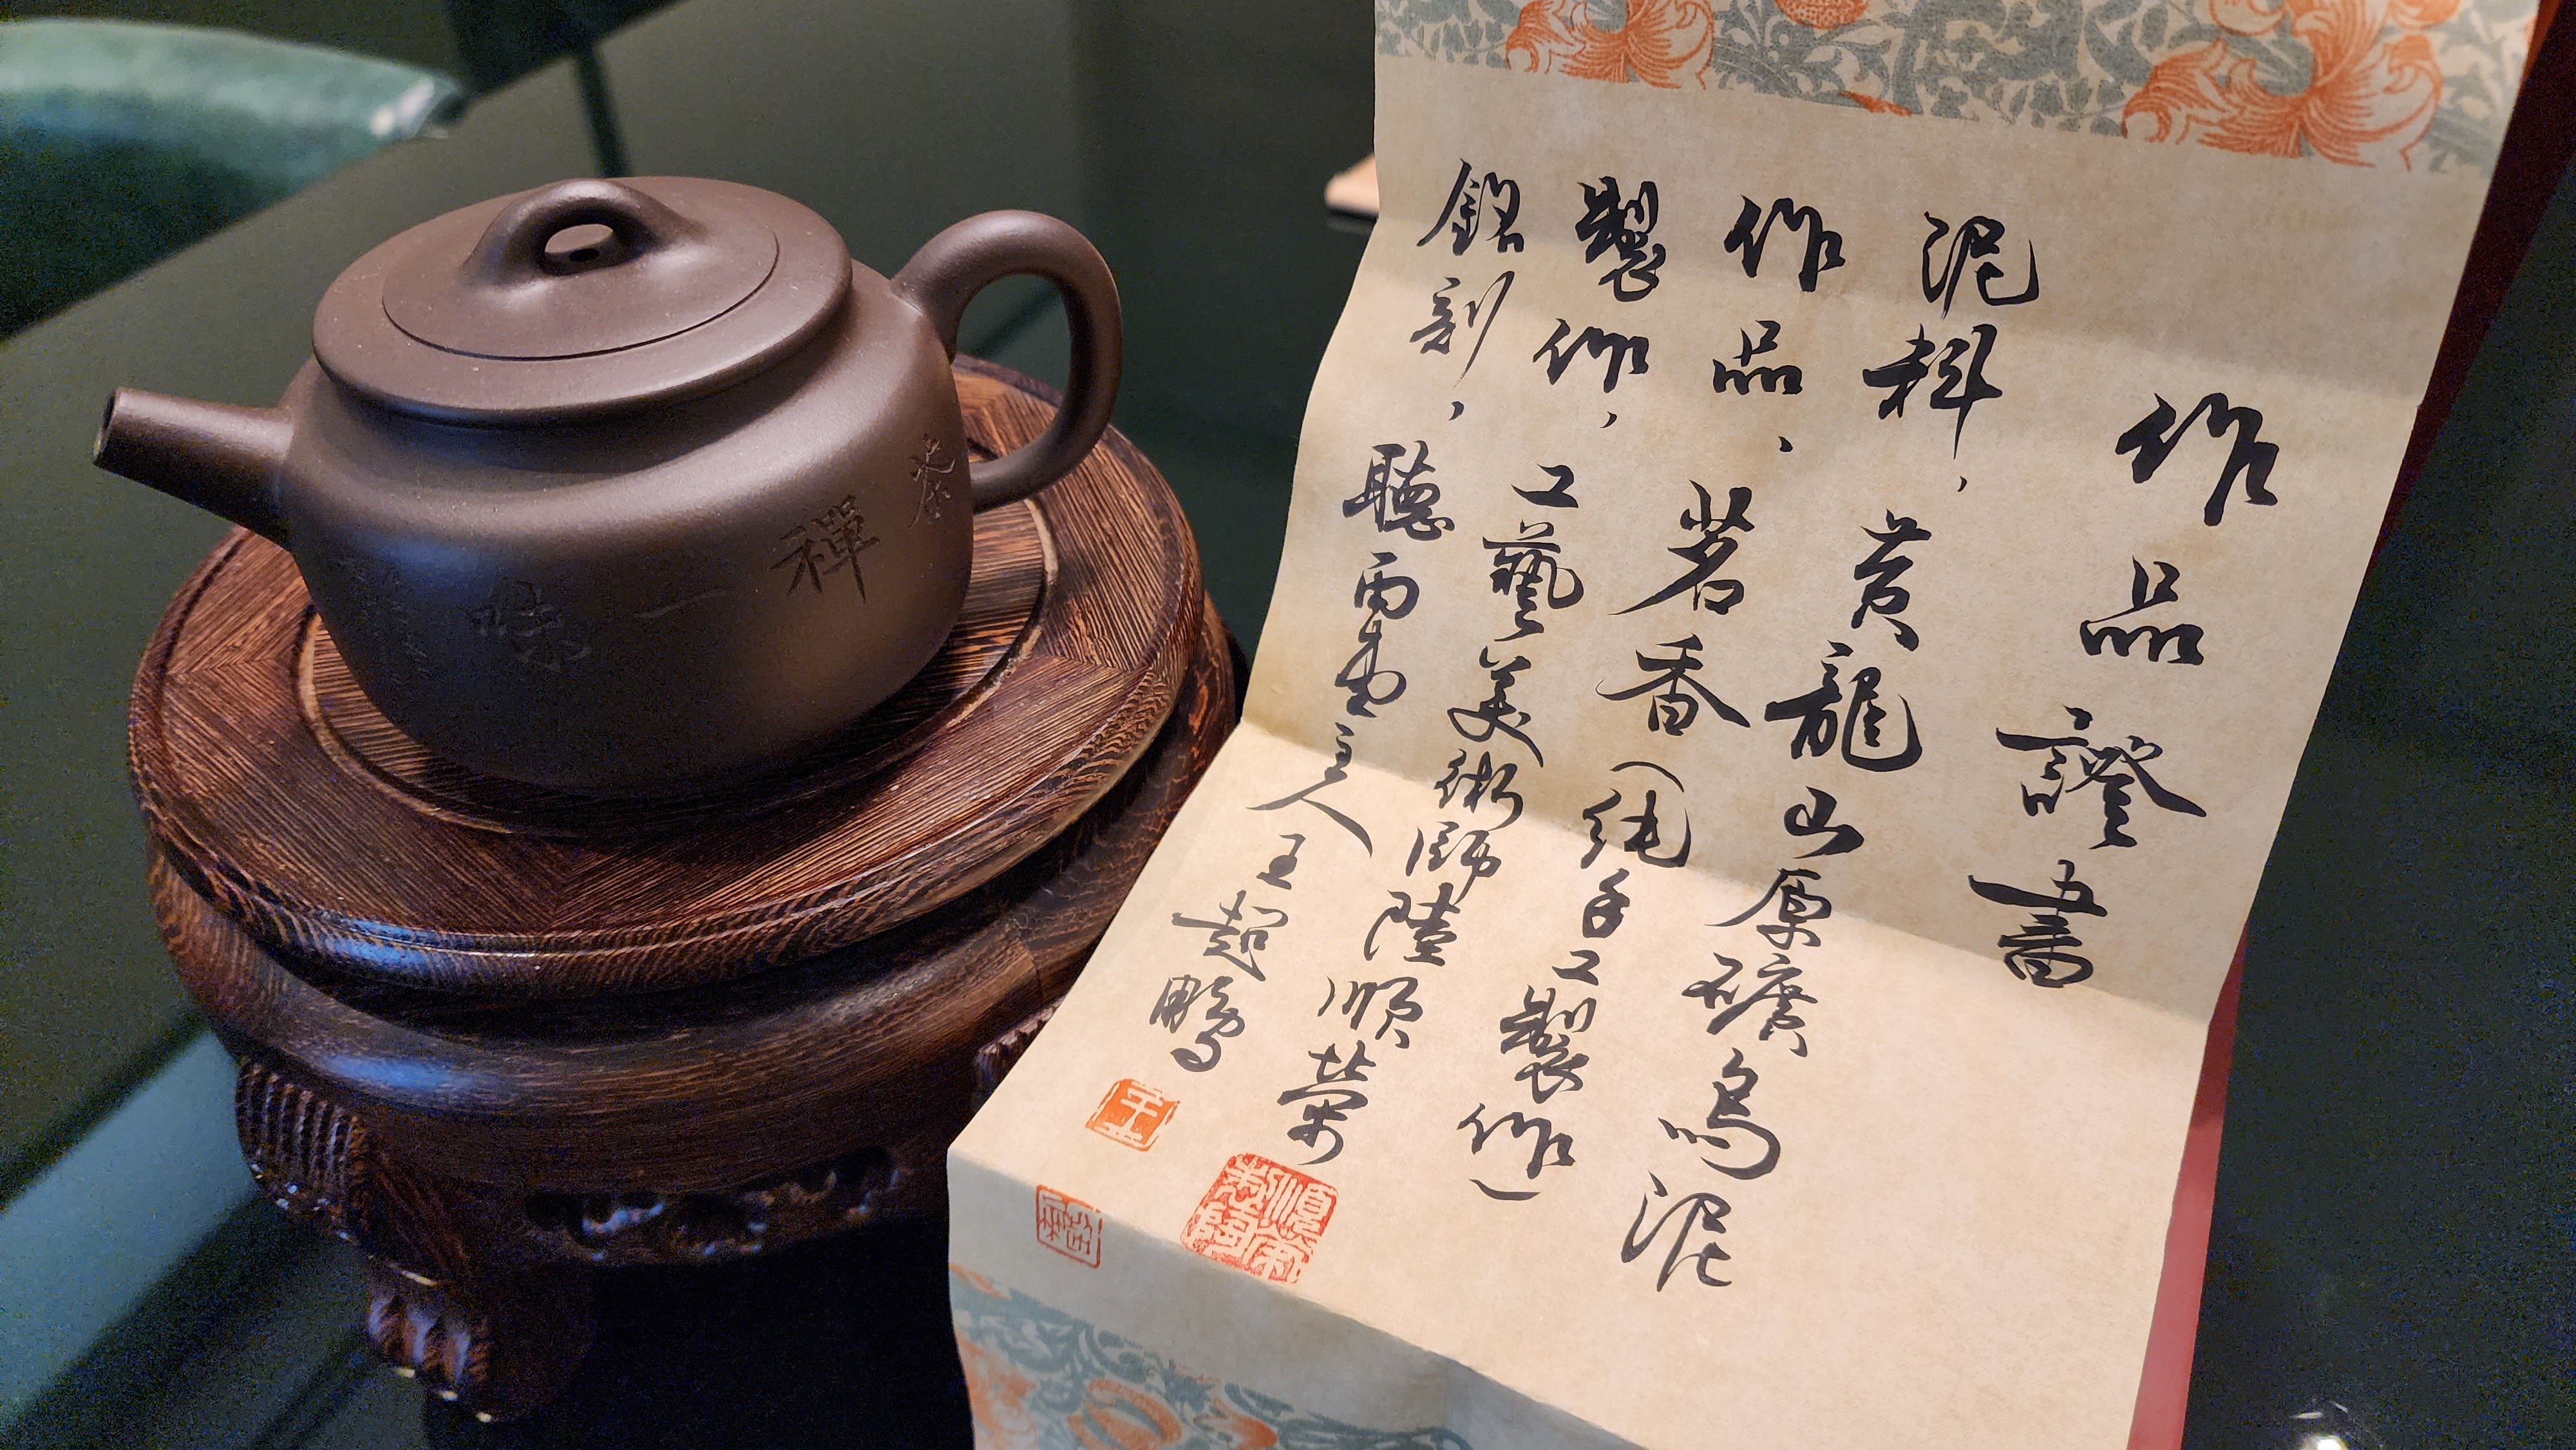 作品證書
泥料，黃龍山原礦烏泥
作品，茗香（純手工製作）
製作，工藝美術師陸順荣
銘刻，聽雨壺主人王超鵬
王
茶禪一味